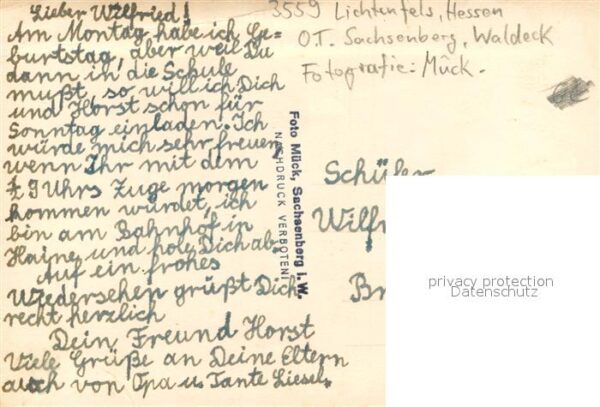 Lieber Wilfried!
Am Montag habe ich Ge-
burtstag, aber weil Du
dann in die Schule
mußt, so will ich Dich
und Horst schon für
Sonntag einladen. Ich
würde mich sehr freuen
wenn Ihr mit dem
½ 9 Uhrs Zuge morgen
kommen würdet, ich
bin am Bahnhof in
Haine und hole Dich ab.
Auf ein frohes
Wiedersehen grüßt Dich
recht herzlich
Dein Freund Horst
Viele Grüße an Deine Eltern
auch von Opa u. Tante Liesel.
3559 Lichtenfels, Hessen
O.T. Sachsenberg, Waldeck
Fotografie: Mück.
Foto Mück, Sachsenberg i. W.
NACHDRUCK VERBOTEN!
Schüler
Wilfr
Br
privacy protection
Datenschutz